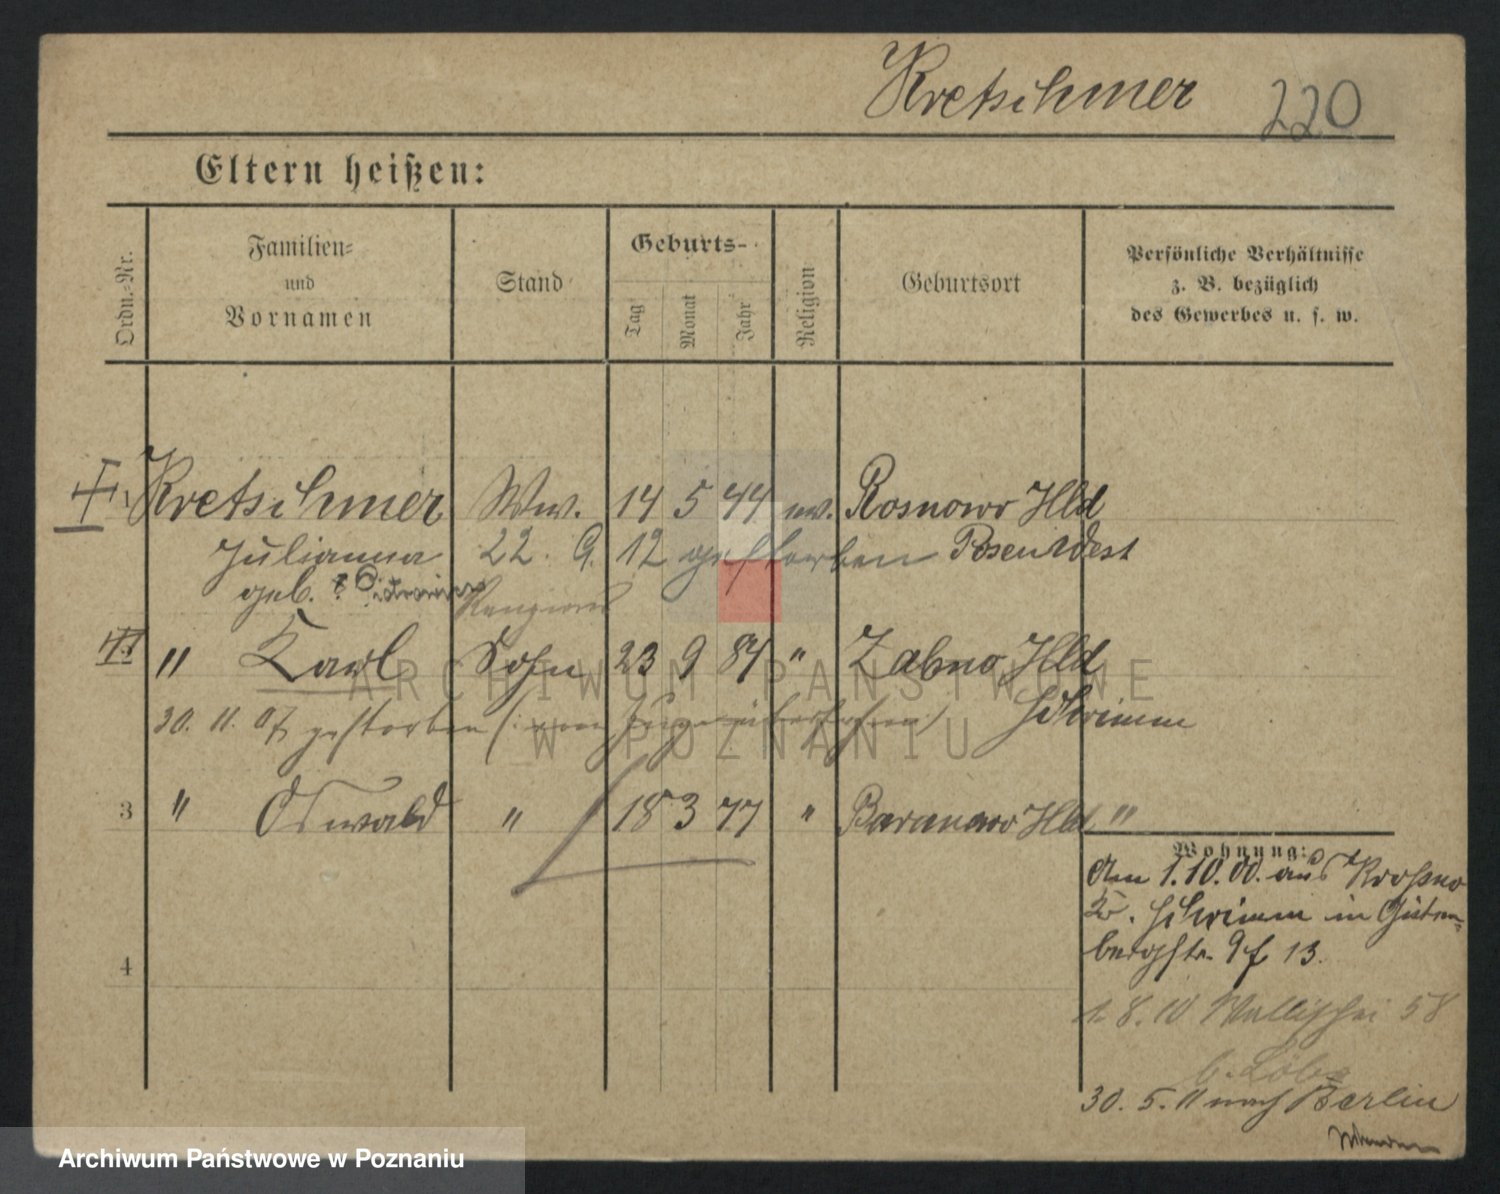 Kretschmer 220
Eltern heißen:
Ordn.-Nr.
Familien=
und
Vornamen
Stand
Geburts-
Tag
Monat
Jahr
Religion
Geburtsort
Persönliche Verhältnisse
z. B. bezüglich
des Gewerbes u. s. w.
1 Kretschmer Ww. 14 5 44 ev. Rosnowo Hld
Julianna 22. 9. 12 gestorben Posen West
geb.
" Karl Sohn 23 9 84 " Zabno Hld
30. 11. 07 gestorben (: vom Zuge überfahren) Schrimm
3 " Oswald " 18 3 77 " Baranowo Hld "
Wohnung:
Am 1.10.00. aus Krosno
Kr. Schrimm in Guten=
bergstr. 9 f 13.
1. 8. 10 Wallischei 58
b. Löbe
30. 5. 11 nach Berlin
4
ARCHIWUM PAŃSTWOWE
W POZNANIU
Archiwum Państwowe w Poznaniu